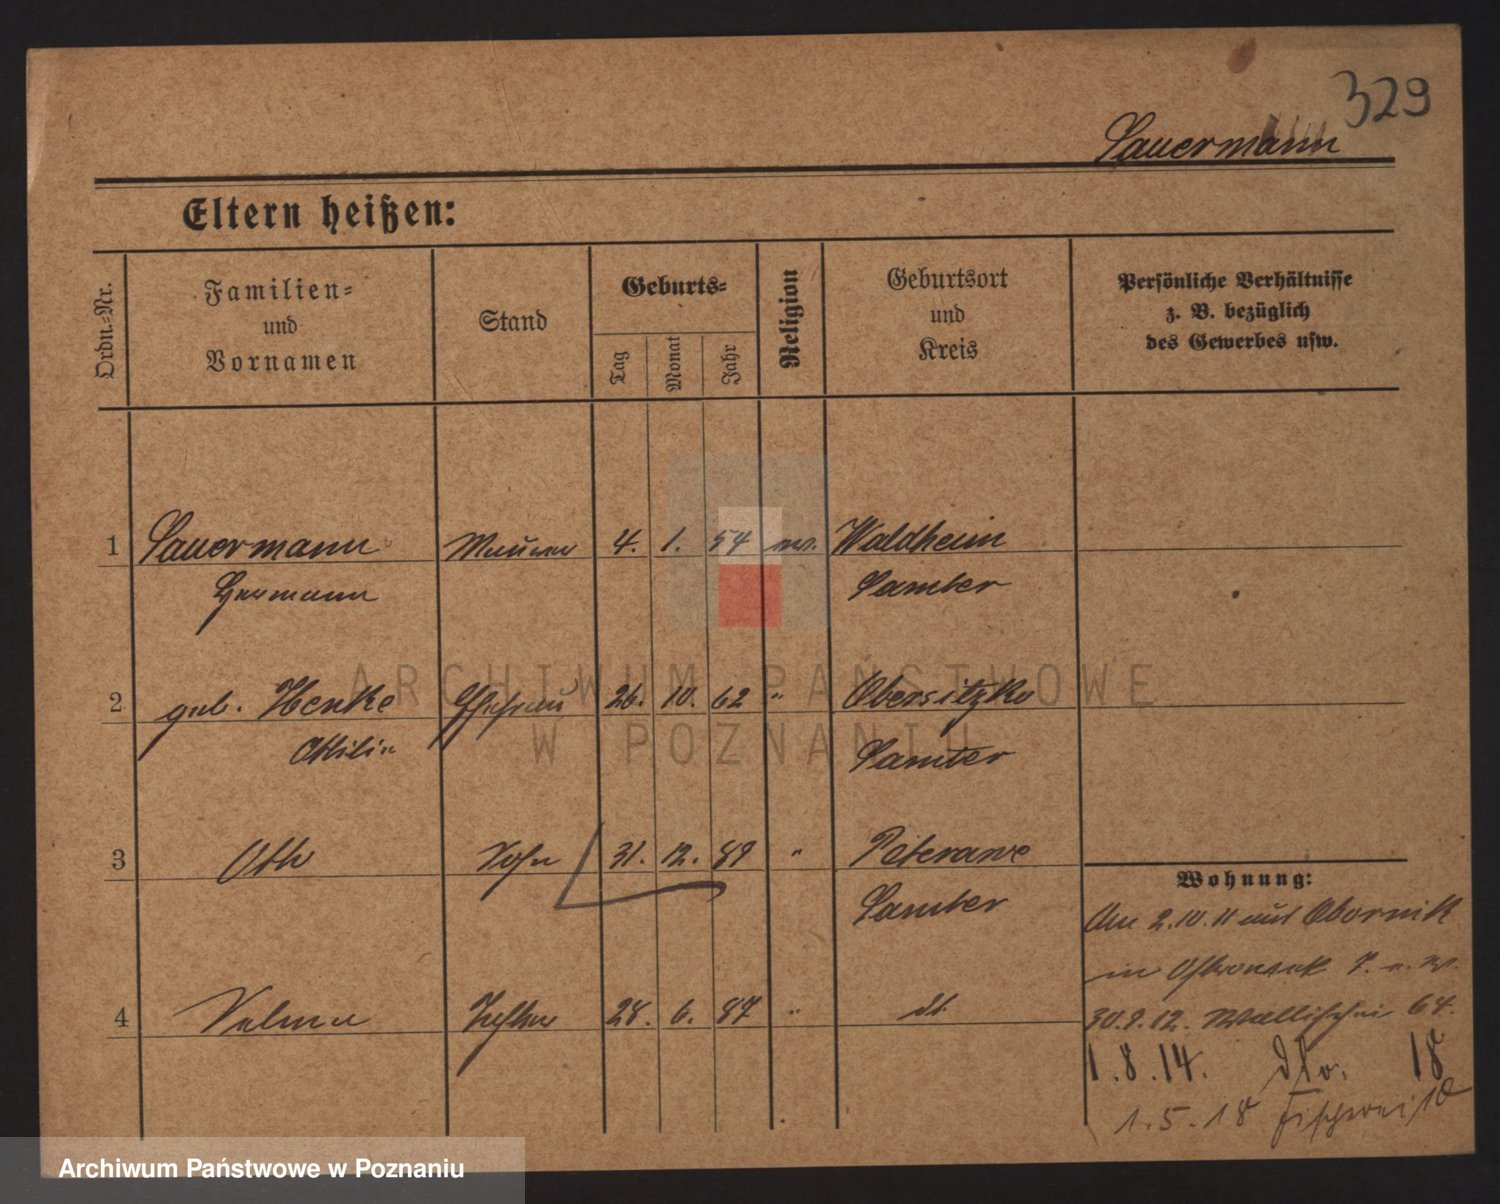 329
Sauermann
Eltern heißen:
Ordn.=Nr.
Familien=
und
Vornamen
Stand
Geburts=
Tag
Monat
Jahr
Religion
Geburtsort
und
Kreis
Persönliche Verhältnisse
z. B. bezüglich
des Gewerbes usw.
1 Sauermann Maurer 4. 1. 54 ev. Waldheim
Hermann Samter
2 geb. Henke Ehefrau 26. 10. 62 " Obersitzko
Ottilie Samter
3 Otto Sohn 31. 12. 89 " Peterawe
Samter
4 Tochter 28. 6. 87 " dt.
Wohnung:
Am 2.10.11 aus Obornik
in 7.
30.9.12. Wallischei 64.
1.8.14. dto. 18
1.5.18 Fischerei 10
ARCHIWUM PAŃSTWOWE
W POZNANIU
Archiwum Państwowe w Poznaniu